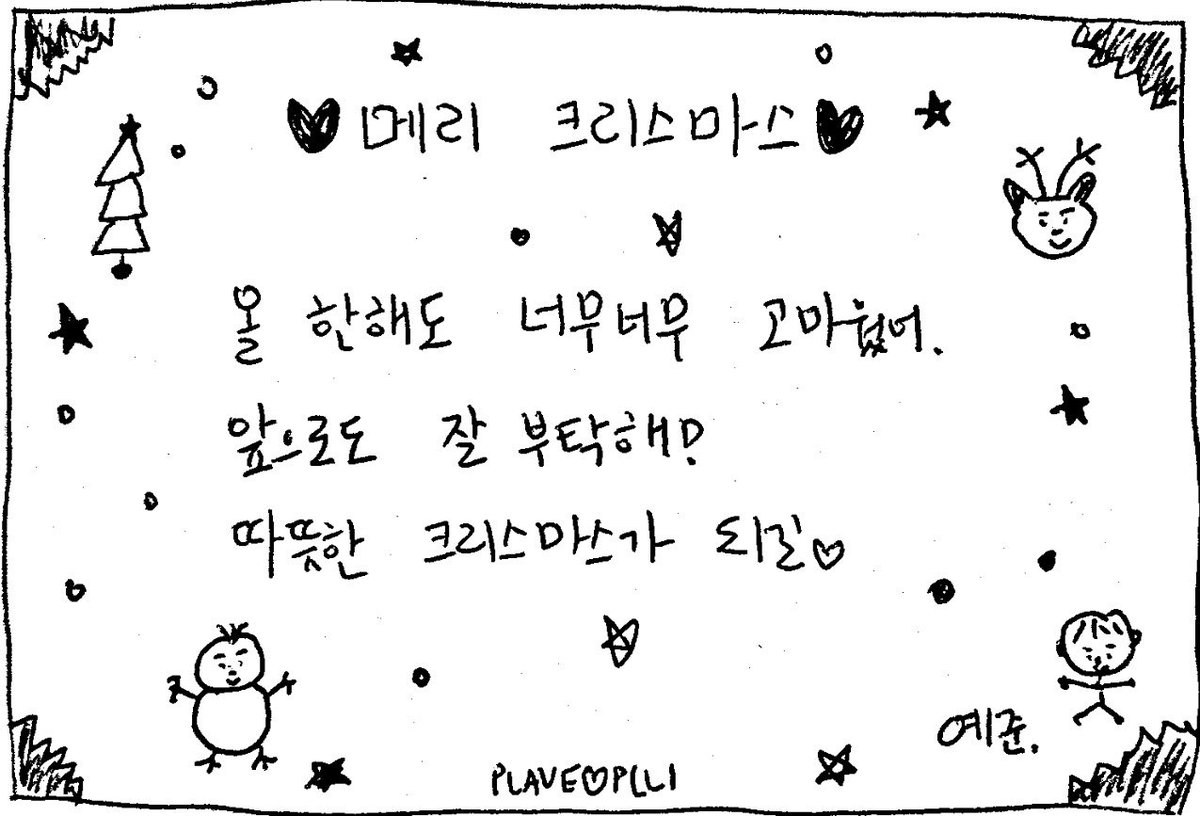 ♥메리 크리스마스♥
올 한해도 너무너무 고마웠어.
앞으로도 잘 부탁해!
따뜻한 크리스마스가 되길♡
예준.
PLAVE♡PLLI